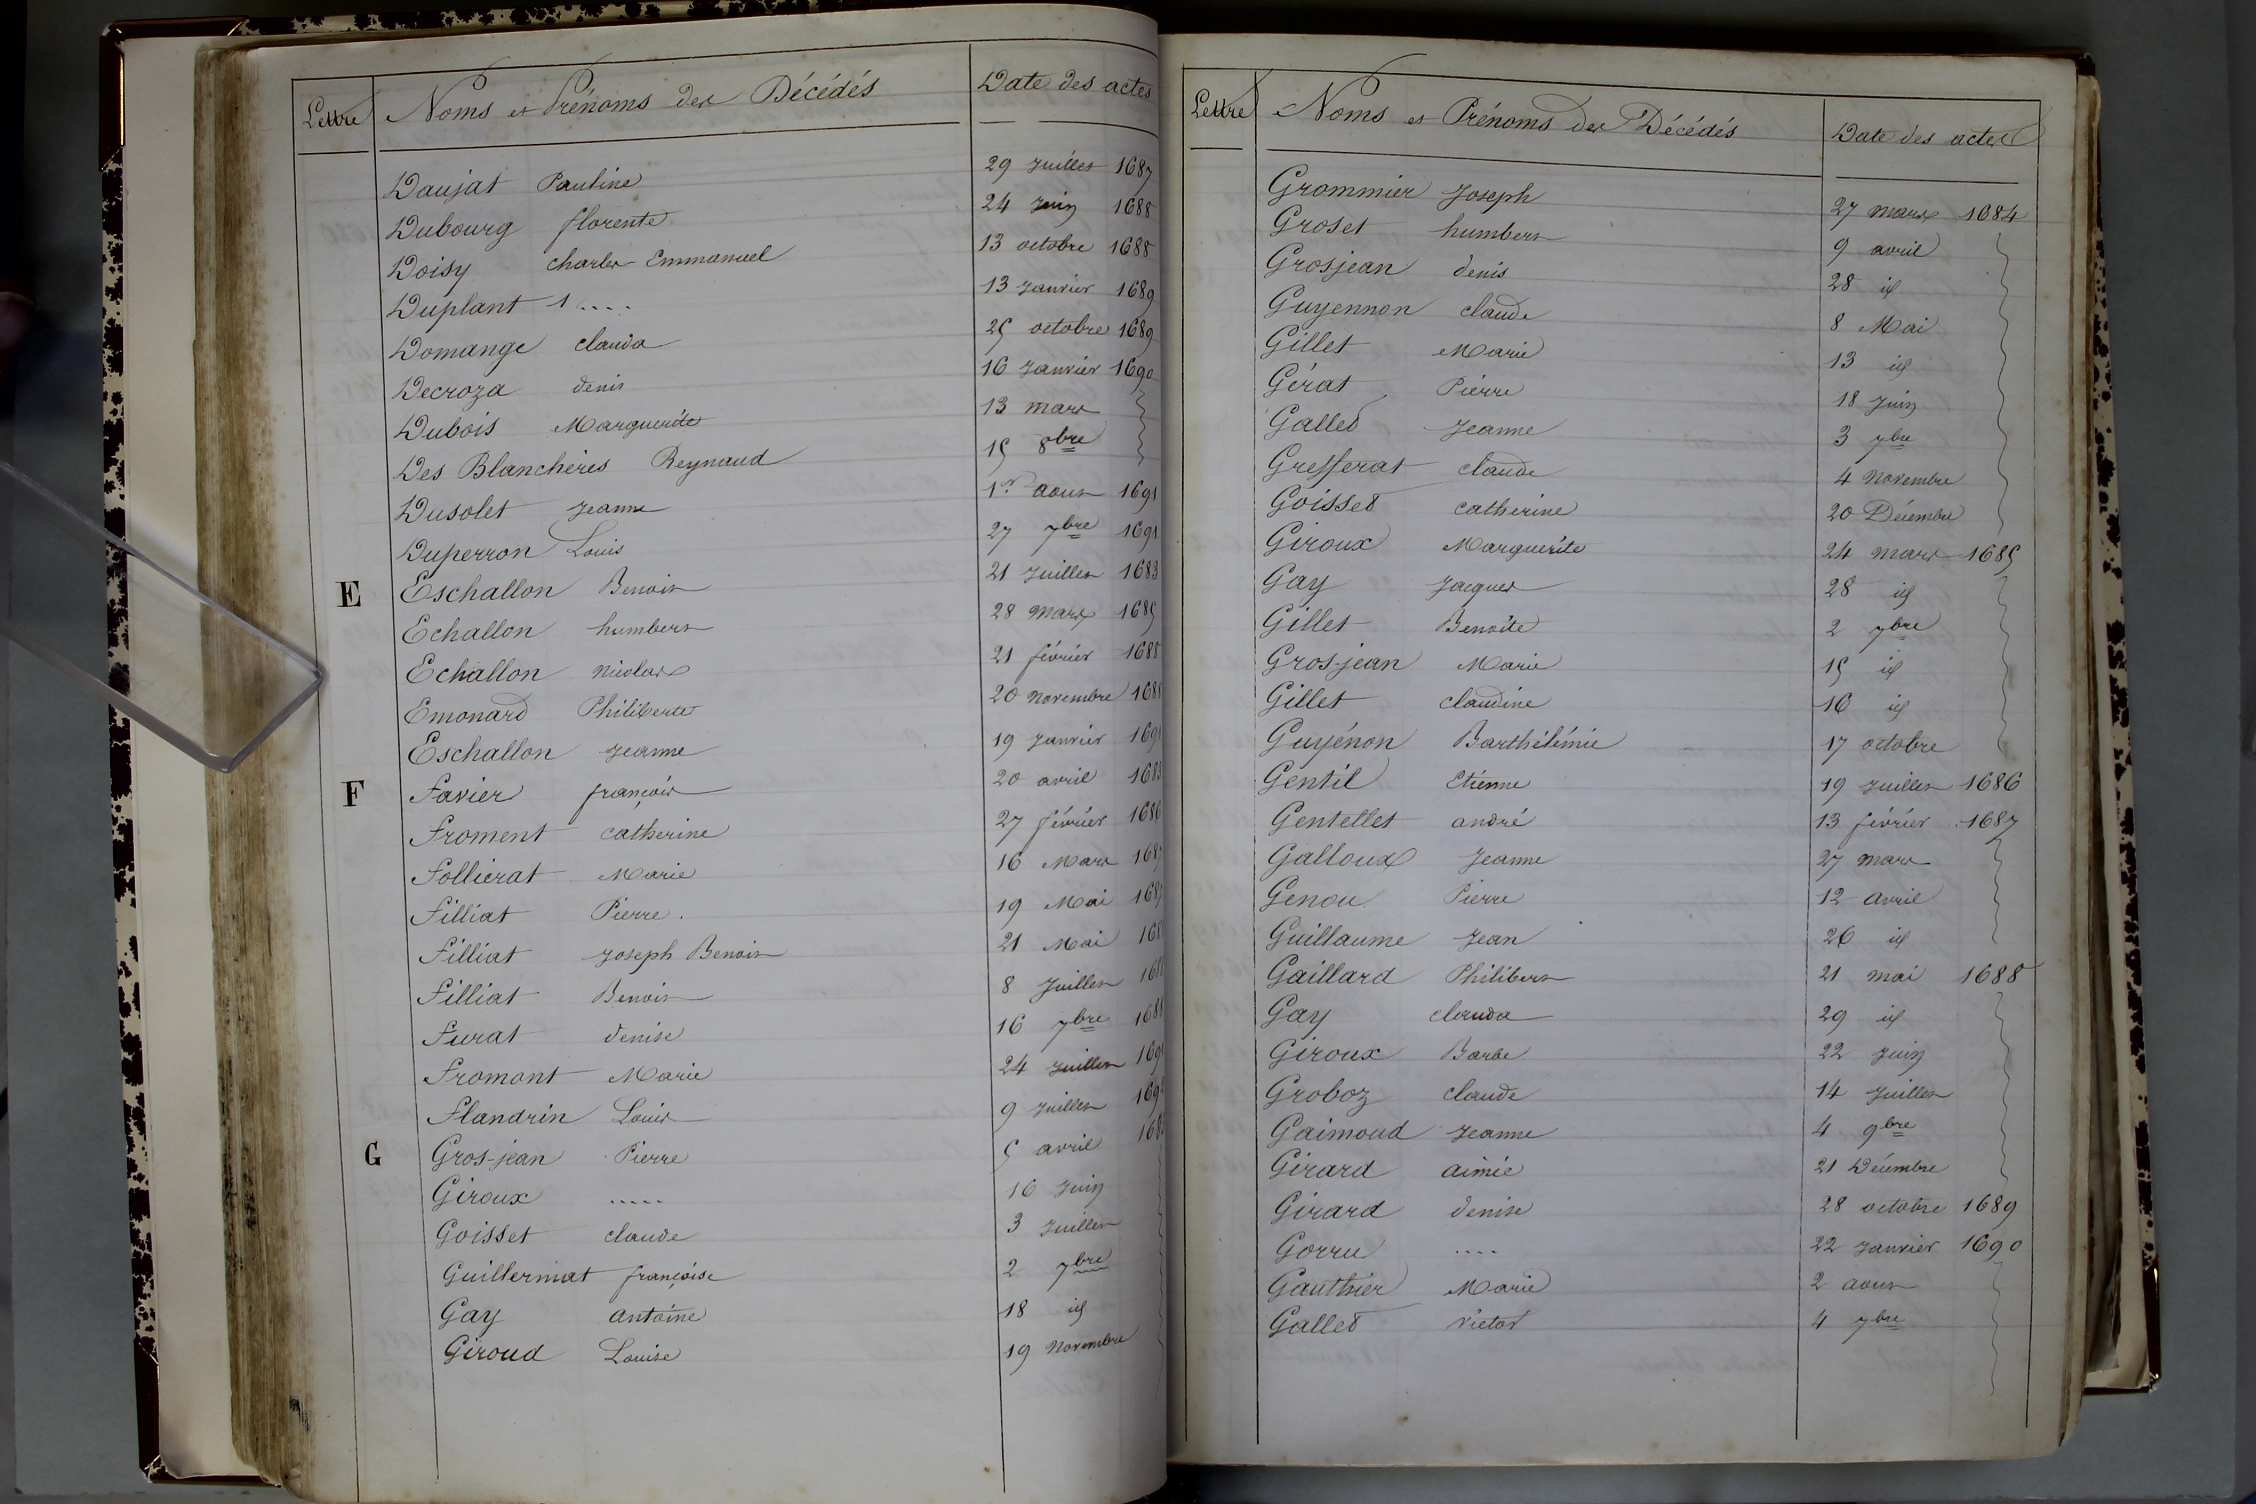 Lettre Noms et Prénoms des Décédés Date des actes
Daujat Pauline 29 Juillet 1687
Dubourg florente 24 Juin 1688
Doisy charles Emmanuel 13 octobre 1688
Duplant 1 .... 13 Janvier 1689
Domange clauda 25 octobre 1689
Decroza denis 16 Janvier 1690
Dubois Marguerite 13 mars
Des Blanchères Reynaud 15 8bre
Dusolet Jeanne 1er aout 1691
Duperron Louis 27 7bre 1691
E Eschallon Benoit 21 Juillet 1683
Echallon humbert 28 mars 1685
Echallon nicolas 21 février 1688
Emonard Philiberte 20 novembre 1688
Eschallon Jeanne 19 Janvier 1691
F Favier françois 20 avril 1683
Froment catherine 27 février 1686
Follierat Marie 16 Mars 1687
Filliat Pierre . 19 Mai
Filliat Joseph Benoit 21 Mai
Filliat Benoit 8 Juillet
Furat denise 16 7bre 1688
Fromont Marie 24 Juillet
Flandrin Louis 9 Juillet
G Gros-jean Pierre 5 avril
Giroux ..... 16 Juin
Goisset claude 3 Juillet
Guillermat françoise 2 7bre
Gay antoine 18 id
Giroud Louise 19 Novembre
Lettre Noms et Prénoms des Décédés Date des actes
Grommier Joseph 27 mars 1684
Groset humbert 9 avril
Grosjean denis 28 id
Guyennon claude 8 Mai
Gillet Marie 13 id
Gérat Pierre 18 Juin
Gallet Jeanne 3 7bre
Grefferat claude 4 novembre
Goisset catherine 20 Décembre
Giroux Marguerite 24 mars 1685
Gay Jacques 28 id
Gillet Benoite 2 7bre
Gros-jean Marie 15 id
Gillet claudine 16 id
Guyénon Barthélémie 17 octobre
Gentil Etienne 19 Juillet 1686
Gentellet andré 13 février 1687
Galloux Jeanne 27 mars
Genou Pierre 12 avril
Guillaume Jean 26 id
Gaillard Philibert 21 mai 1688
Gay clauda 29 id
Giroux Barbe 22 Juin
Groboz claude 14 Juillet
Gaimoud Jeanne 4 9bre
Girard aimée 21 Décembre
Girard denise 28 octobre 1689
Gorru .... 22 Janvier 1690
Gauthier Marie 2 aout
Gallet victor 4 7bre